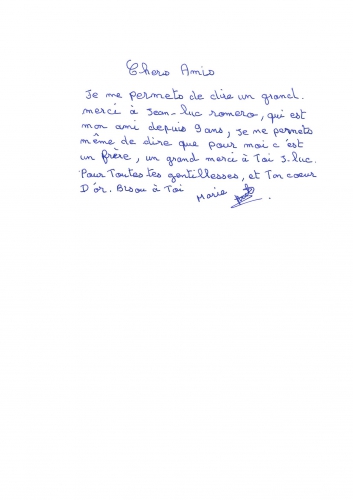 Chers Amis
Je me permets de dire un grand.
merci à Jean-luc romero, qui est
mon ami depuis 9 ans, Je me permets
même de dire que pour moi c'est
un frère, un grand merci à Toi J. luc.
Pour Toutes tes gentillesses, et Ton coeur
D'ôr. Bisou à Toi
Marie